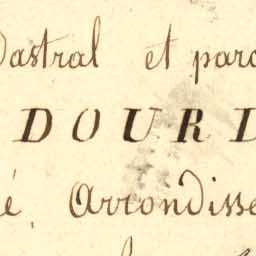 dastral et parc
DOURD
é, Arrondisse